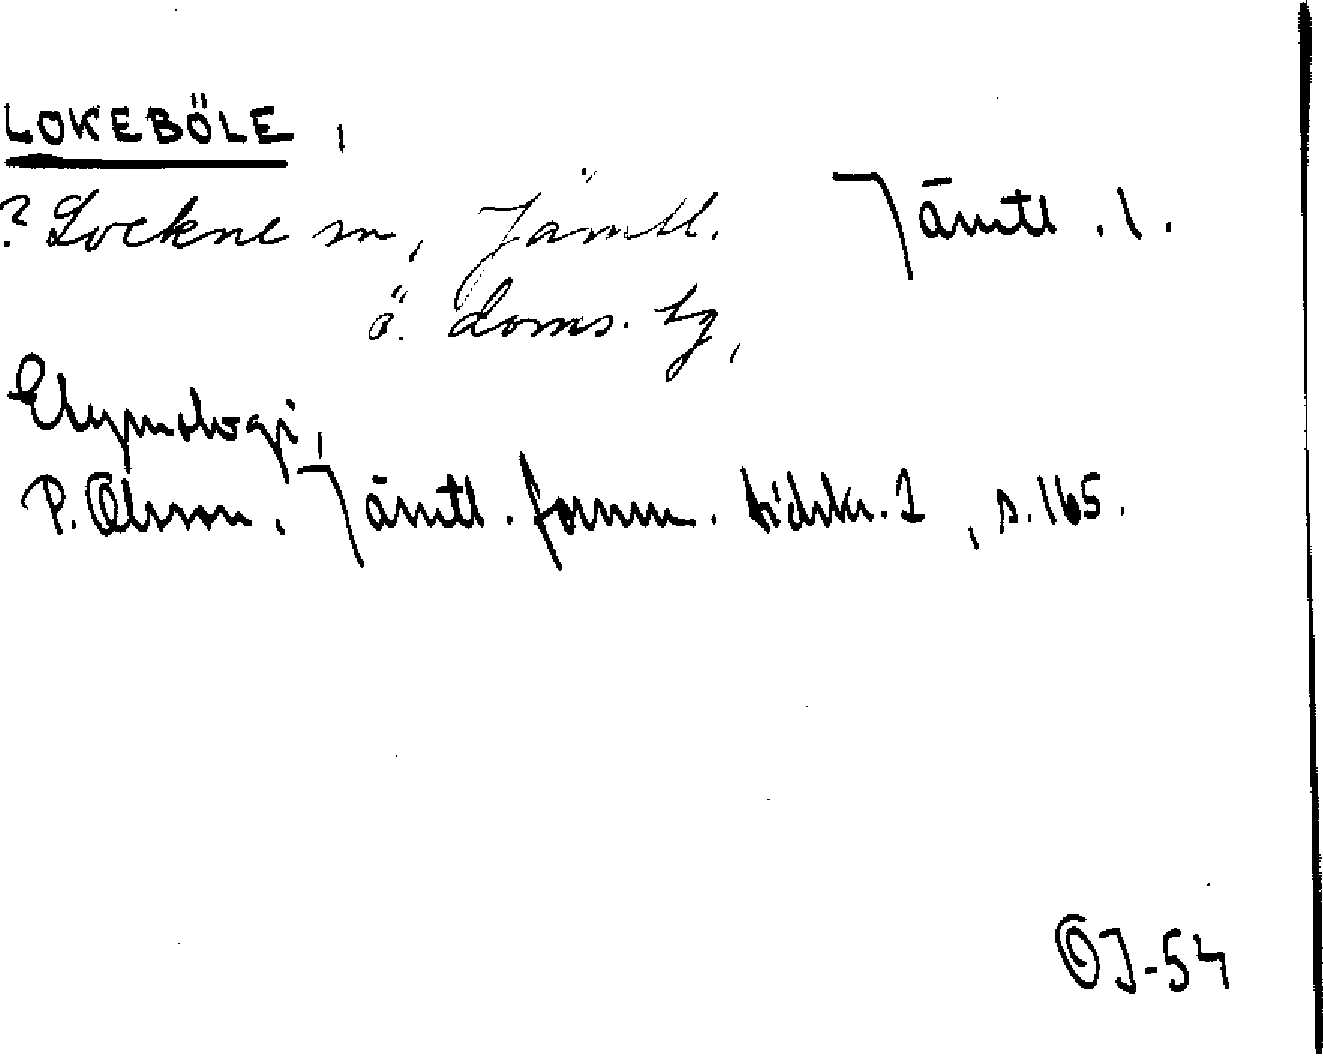 LOKEBÖLE,
? Lockne sn, Jämtl. Jämtl. l.
ö. doms. sg,
Etymologi,
P. Olsson. Jämtl. fornm. tidskr. 1, s. 165.
OJ-54